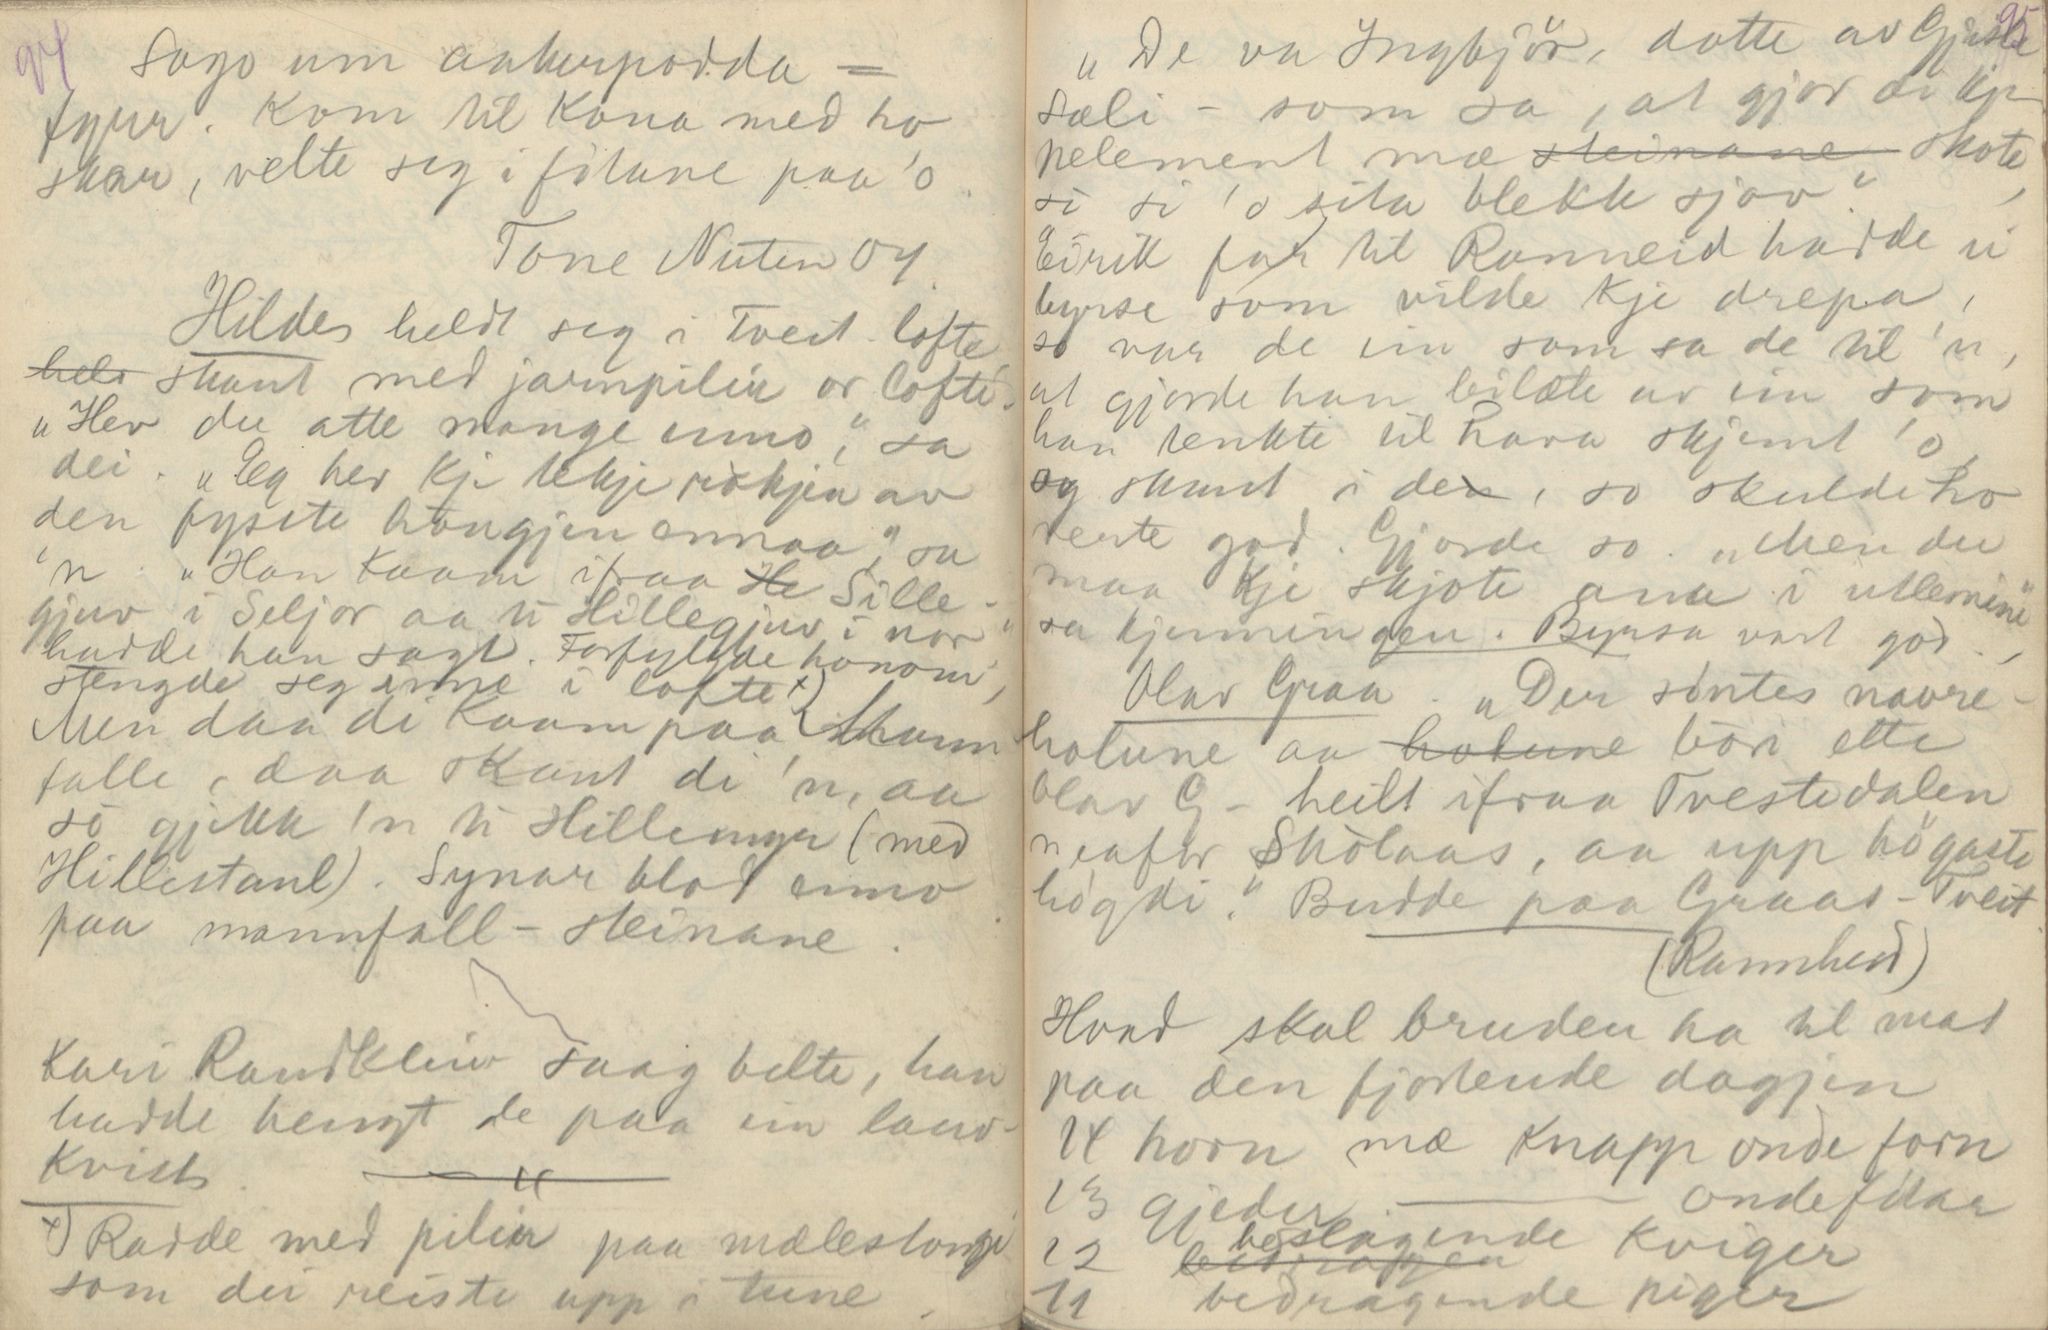 94
Sogo um aakerpodda =
fyrr. Kom til Kona med ho
skar, velte seg i fötane paa 'o.
Tone Nuten 04.
Hildes heldt seg i Tveit-lofte
held skaut med jarnpilir or lofti.
"Hev du atte mange enno," sa
dei. "Eg hev kji tekje rökjen av
den fyste haugjen ennaa," sa
'n. "Han kaam ifraa He Sille-
gjuv i Seljor aa ti Hillegjuv i nor"
hadde han sagt. Forfylgde honom,
stengde seg inne i lofte x)
Men daa di kaam paa Mann
falle, daa skaut di 'n, aa
so gjekk 'n ti Hillemyr (med
Hillestaul). Synar blod enno
paa mannfall-steinane.
Kari Raudkleiv saag belte, han
hadde hengt de paa ein lauv-
kvist.
x) Radde med pilir paa mælestongi
som dei reiste upp i tune.
95
"De va Ingbjör, dotte av Gjusle
Sæli - som sa, at gjor di kji
pelement mæ steinane skote,
so si 'o sita blekk sjov."
Eirik far til Ranneid hadde ei
byrse som vilde kje drepa,
so var de ein som sa de til 'n,
at gjorde han bilæte av ein som
han tenkte til hava skjemt 'o,
og skaut i den, so skulde ho
verte god. Gjorde so. "Men du
maa kje skjote ana i utlemine"
sa kjerringen. Byrsa vart god.
Olav Graa. "Der söntes navre-
holune aa holune böri ette
Olav G - heilt ifraa Tvestedalen
neafor Skolaas, aa upp högaste
högdi." Budde paa Graas-Tveit
(Rannheid)
Hvad skal bruden ha til mad
paa den fjortende dagjen
14 horn mæ knapp onde forn
13 gjeder ——— ondefilar
12 bedragen beslagende kviger
11 bedragende piger